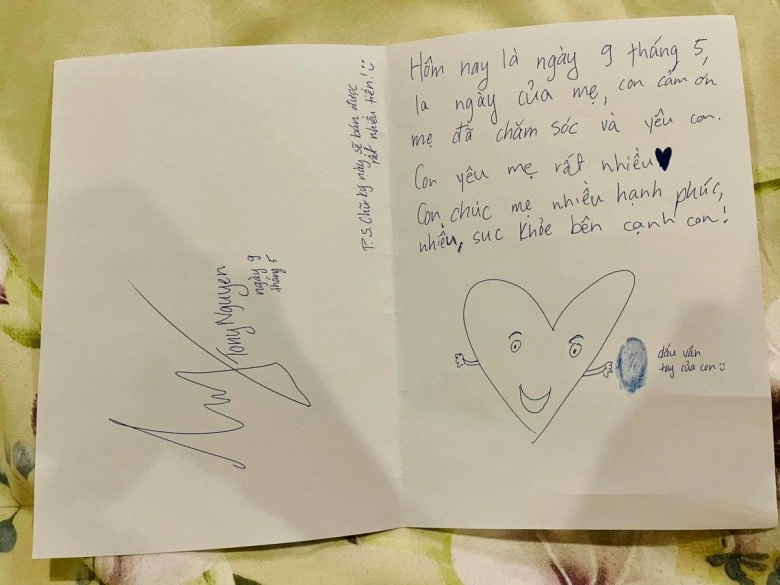 Hôm nay là ngày 9 tháng 5,
la ngày của mẹ, con cảm ơn
mẹ đã chăm sóc và yêu con.
Con yêu mẹ rất nhiều♥
Con chúc mẹ nhiều hanh phúc,
nhiều, suc khỏe bên cạnh con!
dấu vấn
tay của con
P.S. Chữ ký này sẽ bán được
rất nhiều tiền!
Tony Nguyen
ngày 9
tháng 5